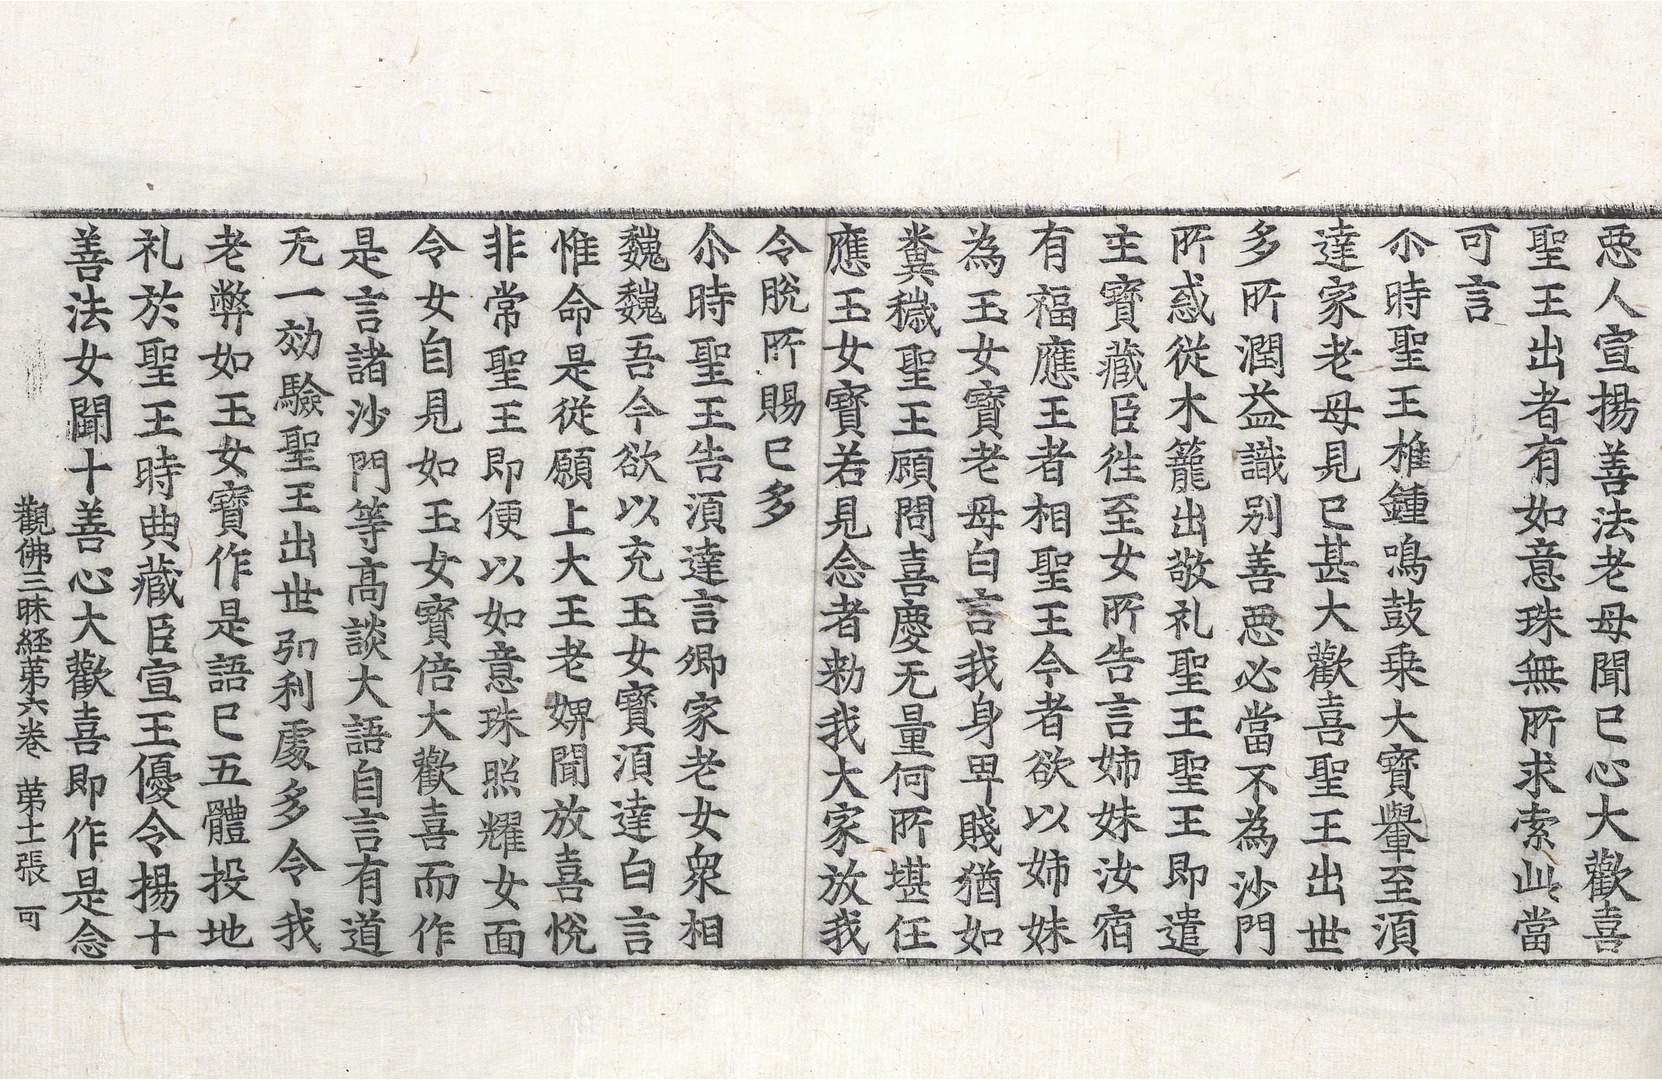 惡人宣揚善法老母聞已心大歡喜
聖王出者有如意珠無所求索此當
可言
尒時聖王椎鍾鳴鼓乗大寶轝至湏
達家老母見已甚大歡喜聖王出世
多所潤益識別善惡必當不為沙門
所惑從木籠出敬礼聖王聖王即遣
主寶藏臣往至女所告言姉妹汝宿
有福應王者相聖王今者欲以姉妹
為玉女寶老母白言我身卑賤猶如
糞穢聖王顧問喜慶无量何所堪任
應玉女寶若見念者勑我大家放我
令脫所賜已多
尒時聖王告湏達言卿家老女衆相
魏魏吾今欲以充玉女寶湏達白言
惟命是從願上大王老婢聞放喜悅
非常聖王即便以如意珠照耀女面
令女自見如玉女寶倍大歡喜而作
是言諸沙門等高談大語自言有道
无一効驗聖王出世弘利處多令我
老弊如玉女寶作是語已五體投地
礼於聖王時典藏臣宣王優令揚十
善法女聞十善心大歡喜即作是念
觀佛三昧経第六卷 第十一張 可